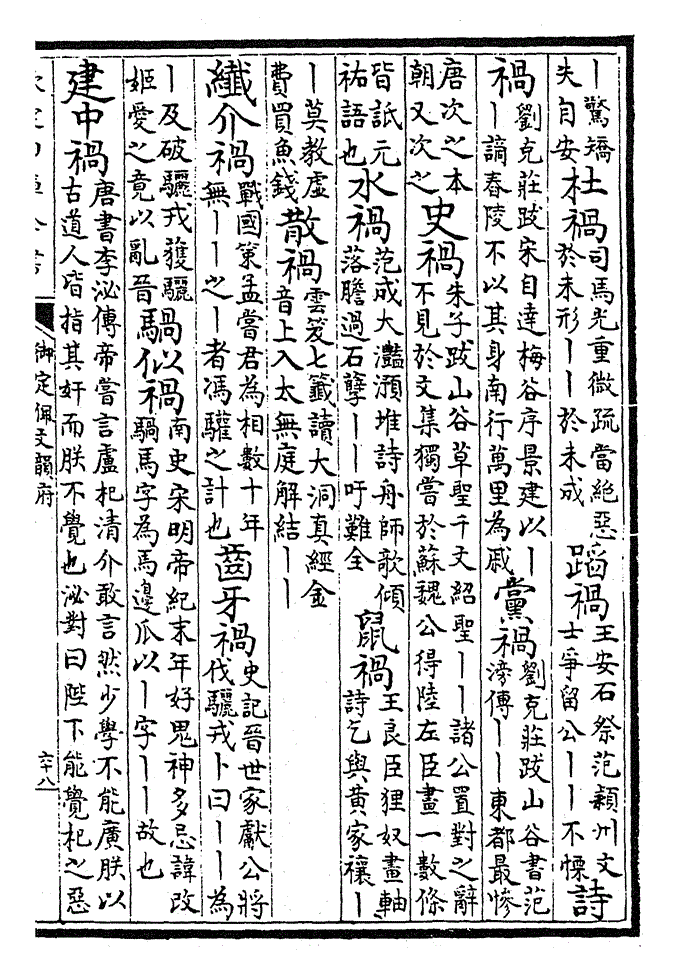 丨驚矯失自安杜禍司馬光重微疏當絕惡於未形丨丨於未成蹈禍王安石祭范潁州文士爭留公丨丨不慄詩
禍劉克莊跋宋自達梅谷序景建以丨丨謫舂陵不以其身南行萬里為戚黨禍劉克莊跋山谷書范滂傳丨丨東都最慘
唐次之本朝又次之史禍朱子跋山谷草聖千文紹聖丨丨諸公置對之辭不見於文集獨嘗於蘇魏公得陸左臣畫一數條
皆詆元祐語也水禍范成大灩澦堆詩舟師歌傾落膽過石孽丨丨吁難全鼠禍王良臣狸奴畫軸詩乞與黄家禳丨
丨莫教虛費買魚錢散禍雲笈七籤讀大洞真經金音上入太無庭解結丨丨
纖介禍戰國策孟嘗君為相數十年無丨丨之丨者馮驩之計也齒牙禍史記晉世家獻公將伐驪戎卜曰丨丨為
丨及破驪戎獲驪姬愛之竟以亂晉騧似禍南史宋明帝紀末年好鬼神多忌諱改騧馬字為馬邊瓜以丨字丨丨故也
建中禍唐書李泌傳帝嘗言盧杞清介敢言然少學不能廣朕以古道人皆指其奸而朕不覺也泌對曰陛下能覺杞之惡
御定佩文韻府
六十八